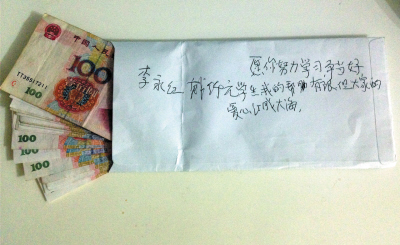 中国人
100
100
100
100
100
愿你努力学习争当好
李永红 贰仟元学生我的帮助有限但大家的
爱心汇成大海.